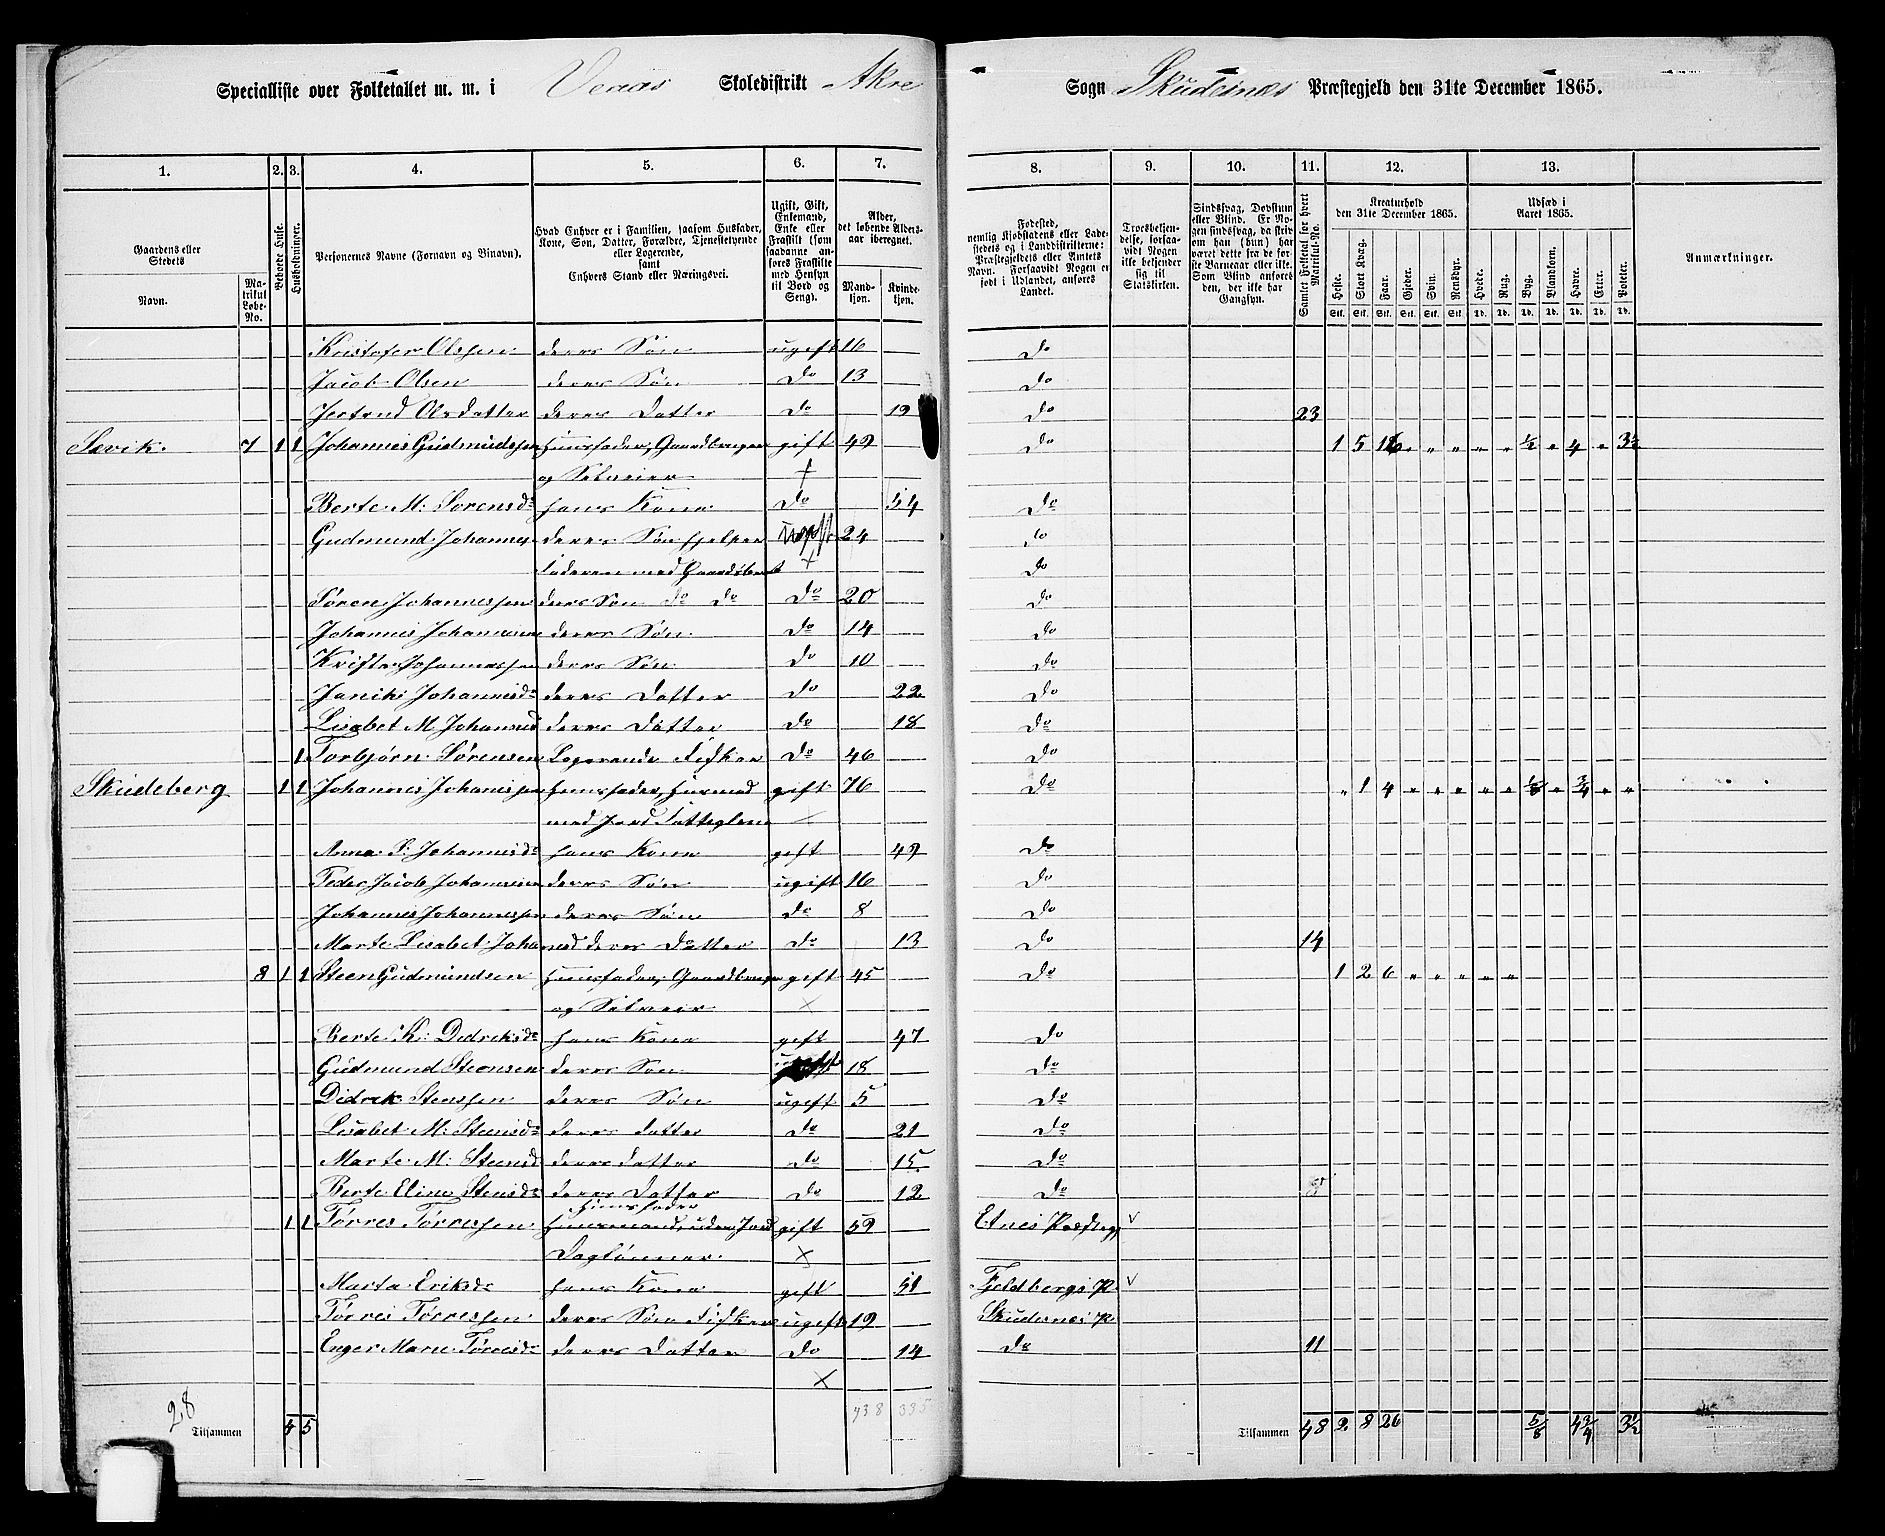 Specialliste over Folketallet m. m. i Veaas Skoledistrikt Akre Sogn Skudesnes Præstegjeld den 31te December 1865.
1. 2. 3. 4. 5. 6. 7. 8. 9. 10. 11. 12. 13.
Gaardens eller Stedets Navn. Matrikul Løbe-No. Beboede Huse. Husholdninger. Personernes Navne (Fornavn og Binavn). Hvad Enhver er i Familien, saasom Husfader, Kone, Søn, Datter, Forældre, Tjenestetyende eller Logerende, samt Enhvers Stand eller Næringsvei. Ugift, Gift, Enkemand, Enke eller Fraskilt (som saadanne anføres Fraskilte med Hensyn til Bord og Seng). Alder, det løbende Aldersaar iberegnet. Mandkjøn. Kvindekjøn.
Fødested, nemlig Kjøbstadens eller Ladestedets og i Landdistrikterne: Præstegjeldets eller Amtets Navn. I Forsaavidt Nogen er født i Udlandet, anføres Landet. Troesbekjendelse, forsaavidt Nogen ikke bekjender sig til Statskirken. Sindssvag, Døvstum eller Blind. Er Nogen sindssvag, da skrives om han (hun) har været dette fra de første Barneaar eller ikke. Som Blind anføres den, der ikke har Gangsyn. Samlet Folketal for hvert Matrikul-No. Kreaturhold den 31te December 1865. Udsæd i Aaret 1865. Anmærkninger.
Heste. Stort Kvæg. Faar. Gjeder. Svin. Rensdyr. Hvede. Rug. Byg. Blandkorn. Havre. Erter. Poteter.
Stk. Stk. Stk. Stk. Stk. Stk. Td. Td. Td. Td. Td. Td. Td.
Kristofer Olssen deres Søn ugift 16 do
Jacob Olsen deres Søn do 13 do
Jertrud Olsdatter deres Datter do 19 do 23
Sævik. 7 1 1 Johannes Gudmundssen Huusfader, Gaardbruger gift 49 do 1 5 16 " " " " " ½ " 4 " 3½
og Selveier +
Berte M: Sørensdr hans Kone do 54 do
Gudmund Johannes. deres Søn hjelper ugift 24 do
faderen med Gaardsbr + do
Søren Johannessen deres Søn do do do 20 do
Johannes Johannessen deres Søn do 14 do
Krist Johannessen deres Søn do 10 do
Janiki Johannesdr deres Datter do 22 do
Lisabet M. Johannesd deres Datter do 18 do
1 Torbjørn Sørensen Logerende Fisker do 46 do
Skudeberg 1 1 Johannes Johannessen Huusfader, Huusmand gift 76 do " 1 4 " " " " " ⅛ " ¾ " "
med Jord
Anna S. Johannesdr hans Kone gift 49 do
Peder Jacob Johannessen deres Søn ugift 16 do
Johannes Johannessen deres Søn do 8 do
Marte Lisabet Johannesd deres Datter do 13 do 14
8 1 1 Steen Gudmundsen Huusfader, Gaardbruger gift 45 do 1 2 6 " " " " "
og Selveier ×
Berte K: Didriksdr hans Kone gift 47 do
Gudmund Steensen deres Søn ugift 18 do
Didrik Stenssen deres Søn ugift 5 do
Lisabet M: Steensdr deres datter do 21 do
Marte M: Steensd deres datter do 15 do
Berte Eline Stensdr deres Datter do 12 do
Huusfader
1 1 Tørres Tørressen Huusmand, uden Jord gift 59 Etnes Præstegj v
Daglønner. ×
Marta Eriksdr hans Kone gift 51 Fjeldbergs P. v
Tørres Tørressen deres Søn Fisker ugift 19 Skudesnes P.
Enger Marie Tørresdr deres Datter do 14 do 11
×
28 738 335
Tilsammen 4 5 Tilsammen 48 2 8 26 5/8 4¾ 3½